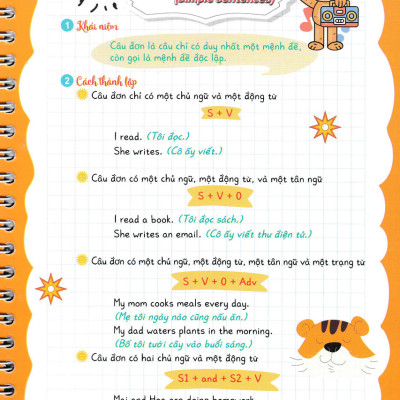 (Simple sentences)
1 Khái niệm
Câu đơn là câu chỉ có duy nhất một mệnh đề,
còn gọi là mệnh đề độc lập.
2 Cách thành lập
Câu đơn chỉ có một chủ ngữ và một động từ
S + V
I read. (Tôi đọc.)
She writes. (Cô ấy viết.)
Câu đơn có một chủ ngữ, một động từ, và một tân ngữ
S + V + O
I read a book. (Tôi đọc sách.)
She writes an email. (Cô ấy viết thư điện tử.)
Câu đơn có một chủ ngữ, một động từ, một tân ngữ và một trạng từ
S + V + O + Adv
My mom cooks meals every day.
(Mẹ tôi ngày nào cũng nấu ăn.)
My dad waters plants in the morning.
(Bố tôi tưới cây vào buổi sáng.)
Câu đơn có hai chủ ngữ và một động từ
S1 + and + S2 + V
Mai and Hoa are doing homework.